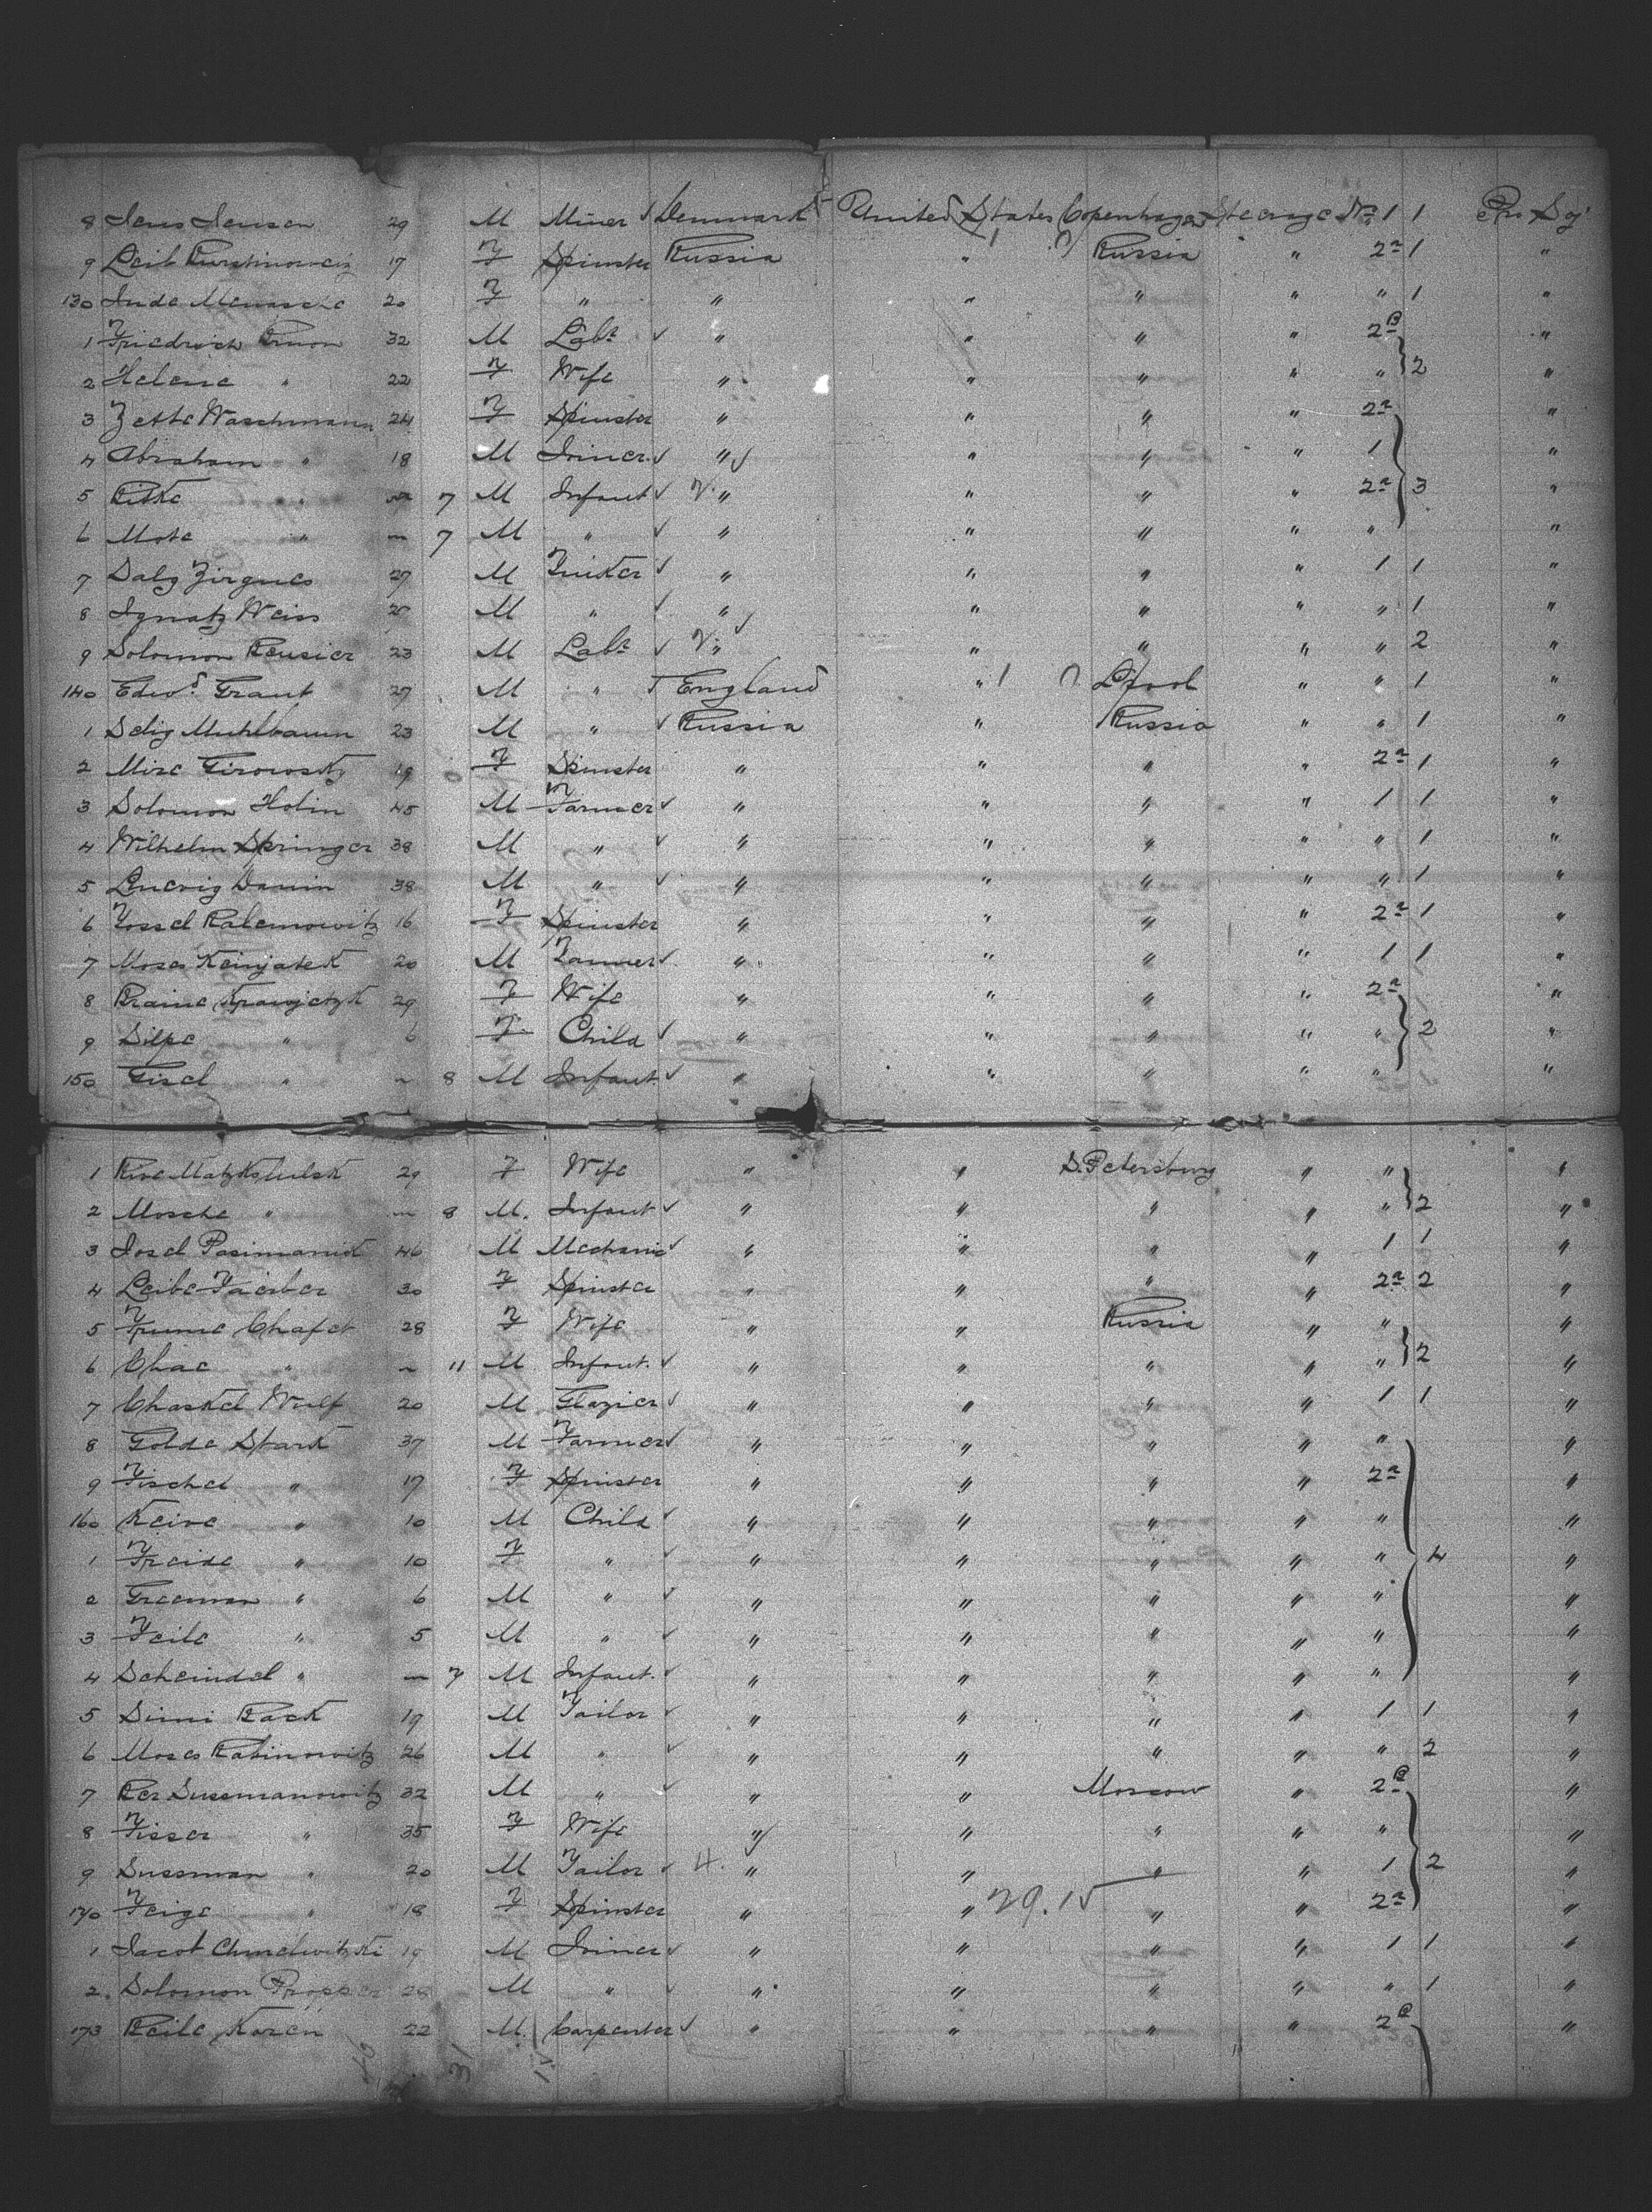 8 Jens Jensen 29 M Miner Denmark United States Copenhagen Steerage No 1 1 Pro Soj
9 Leib 17 F Spinster Russia " Russia " 2a 1 "
130 Inda Menasche 20 F " " " " " " 1 "
1 Friedrich 32 M Labr " " " " 2B "
2 Helene " 22 F Wife " " " " " 2 "
3 Zette Waschmann 24 F Spinster " " " " 2a "
4 Abraham " 18 M Joiner " " " " 1 "
5 Ritke " 7 M Infant " " " " 2a 3 "
6 Mote " 7 M " " " " " " "
7 Salz Zirgnes 27 M Tinker " " " " 1 1 "
8 Ignatz Weiss M " " " " " " 1 "
9 Solomon 23 M Labr " " " " " 2 "
140 Edwd. Grant 27 M " England " 1 L'pool " " 1 "
1 Selig Muhlbaum 23 M " Russia " Russia " " 1 "
2 Mire Girowosky 19 F Spinster " " " " 2a 1 "
3 Solomon Holin 45 M Farmer " " " " 1 1 "
4 Wilhelm Springer 38 M " " " " " " 1 "
5 Ludwig 38 M " " " " " " 1 "
6 Yossel 16 F Spinster " " " " 2a 1 "
7 Moses 20 M Tanner " " " " 1 1 "
8 Braine 29 F Wife " " " " 2a "
9 Silpe " 6 F Child " " " " " 2 "
150 Gisel " 8 M Infant " " " " " "
1 Rive 29 F Wife " " S. Petersburg " " "
2 Mosche " 8 M. Infant " " " " " 2 "
3 Josel 46 M Mechanic " " " " 1 1 "
4 Leibe Faerber 30 F Spinster " " " " 2a 2 "
5 Frume Chafet 28 F Wife " " Russia " " "
6 Chae " 11 M Infant. " " " " " 2 "
7 Chaskel Wulf 20 M Glazier " " " " 1 1 "
8 Golde Stark 37 M Farmer " " " " " "
9 Fischel " 17 F Spinster " " " " 2a "
160 Keive " 10 M Child " " " " " "
1 Freide " 10 F " " " " " " 4 "
2 Greeman " 6 M " " " " " " "
3 Feile " 5 M " " " " " " "
4 Scheindel " 7 M Infant. " " " " " "
5 Simi Rack 19 M Tailor " " " " 1 1 "
6 Moses Rabinowitz 26 M " " " " " " 2 "
7 Ber Sussmanowitz 32 M " " " Moscow " 2B "
8 Fisser " 35 F Wife " " " " " "
9 Sussman " 20 M Tailor 4. " " " " 1 2 "
170 Feige " 18 F Spinster " " 29.15 " " 2a "
1 Jacob 19 M Joiner " " " " 1 1 "
2. Solomon Propper 28 M " " " " " " 1 "
173 Beile Koren 22 M. Carpenter " " " " 2B "
31